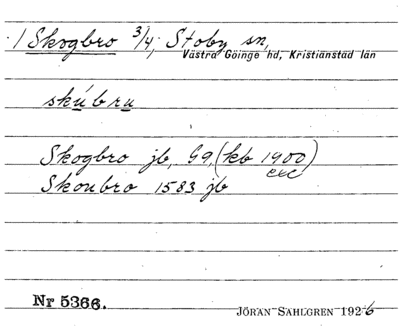 / Skogbro 3/4, Stoby sn,
Västra Göinge hd, Kristianstad län
skúbru
Skogbro jb, G9, (kb 1900)
exc
Skoubro 1583 jb
Nr 5366.
JÖRAN SAHLGREN 1926